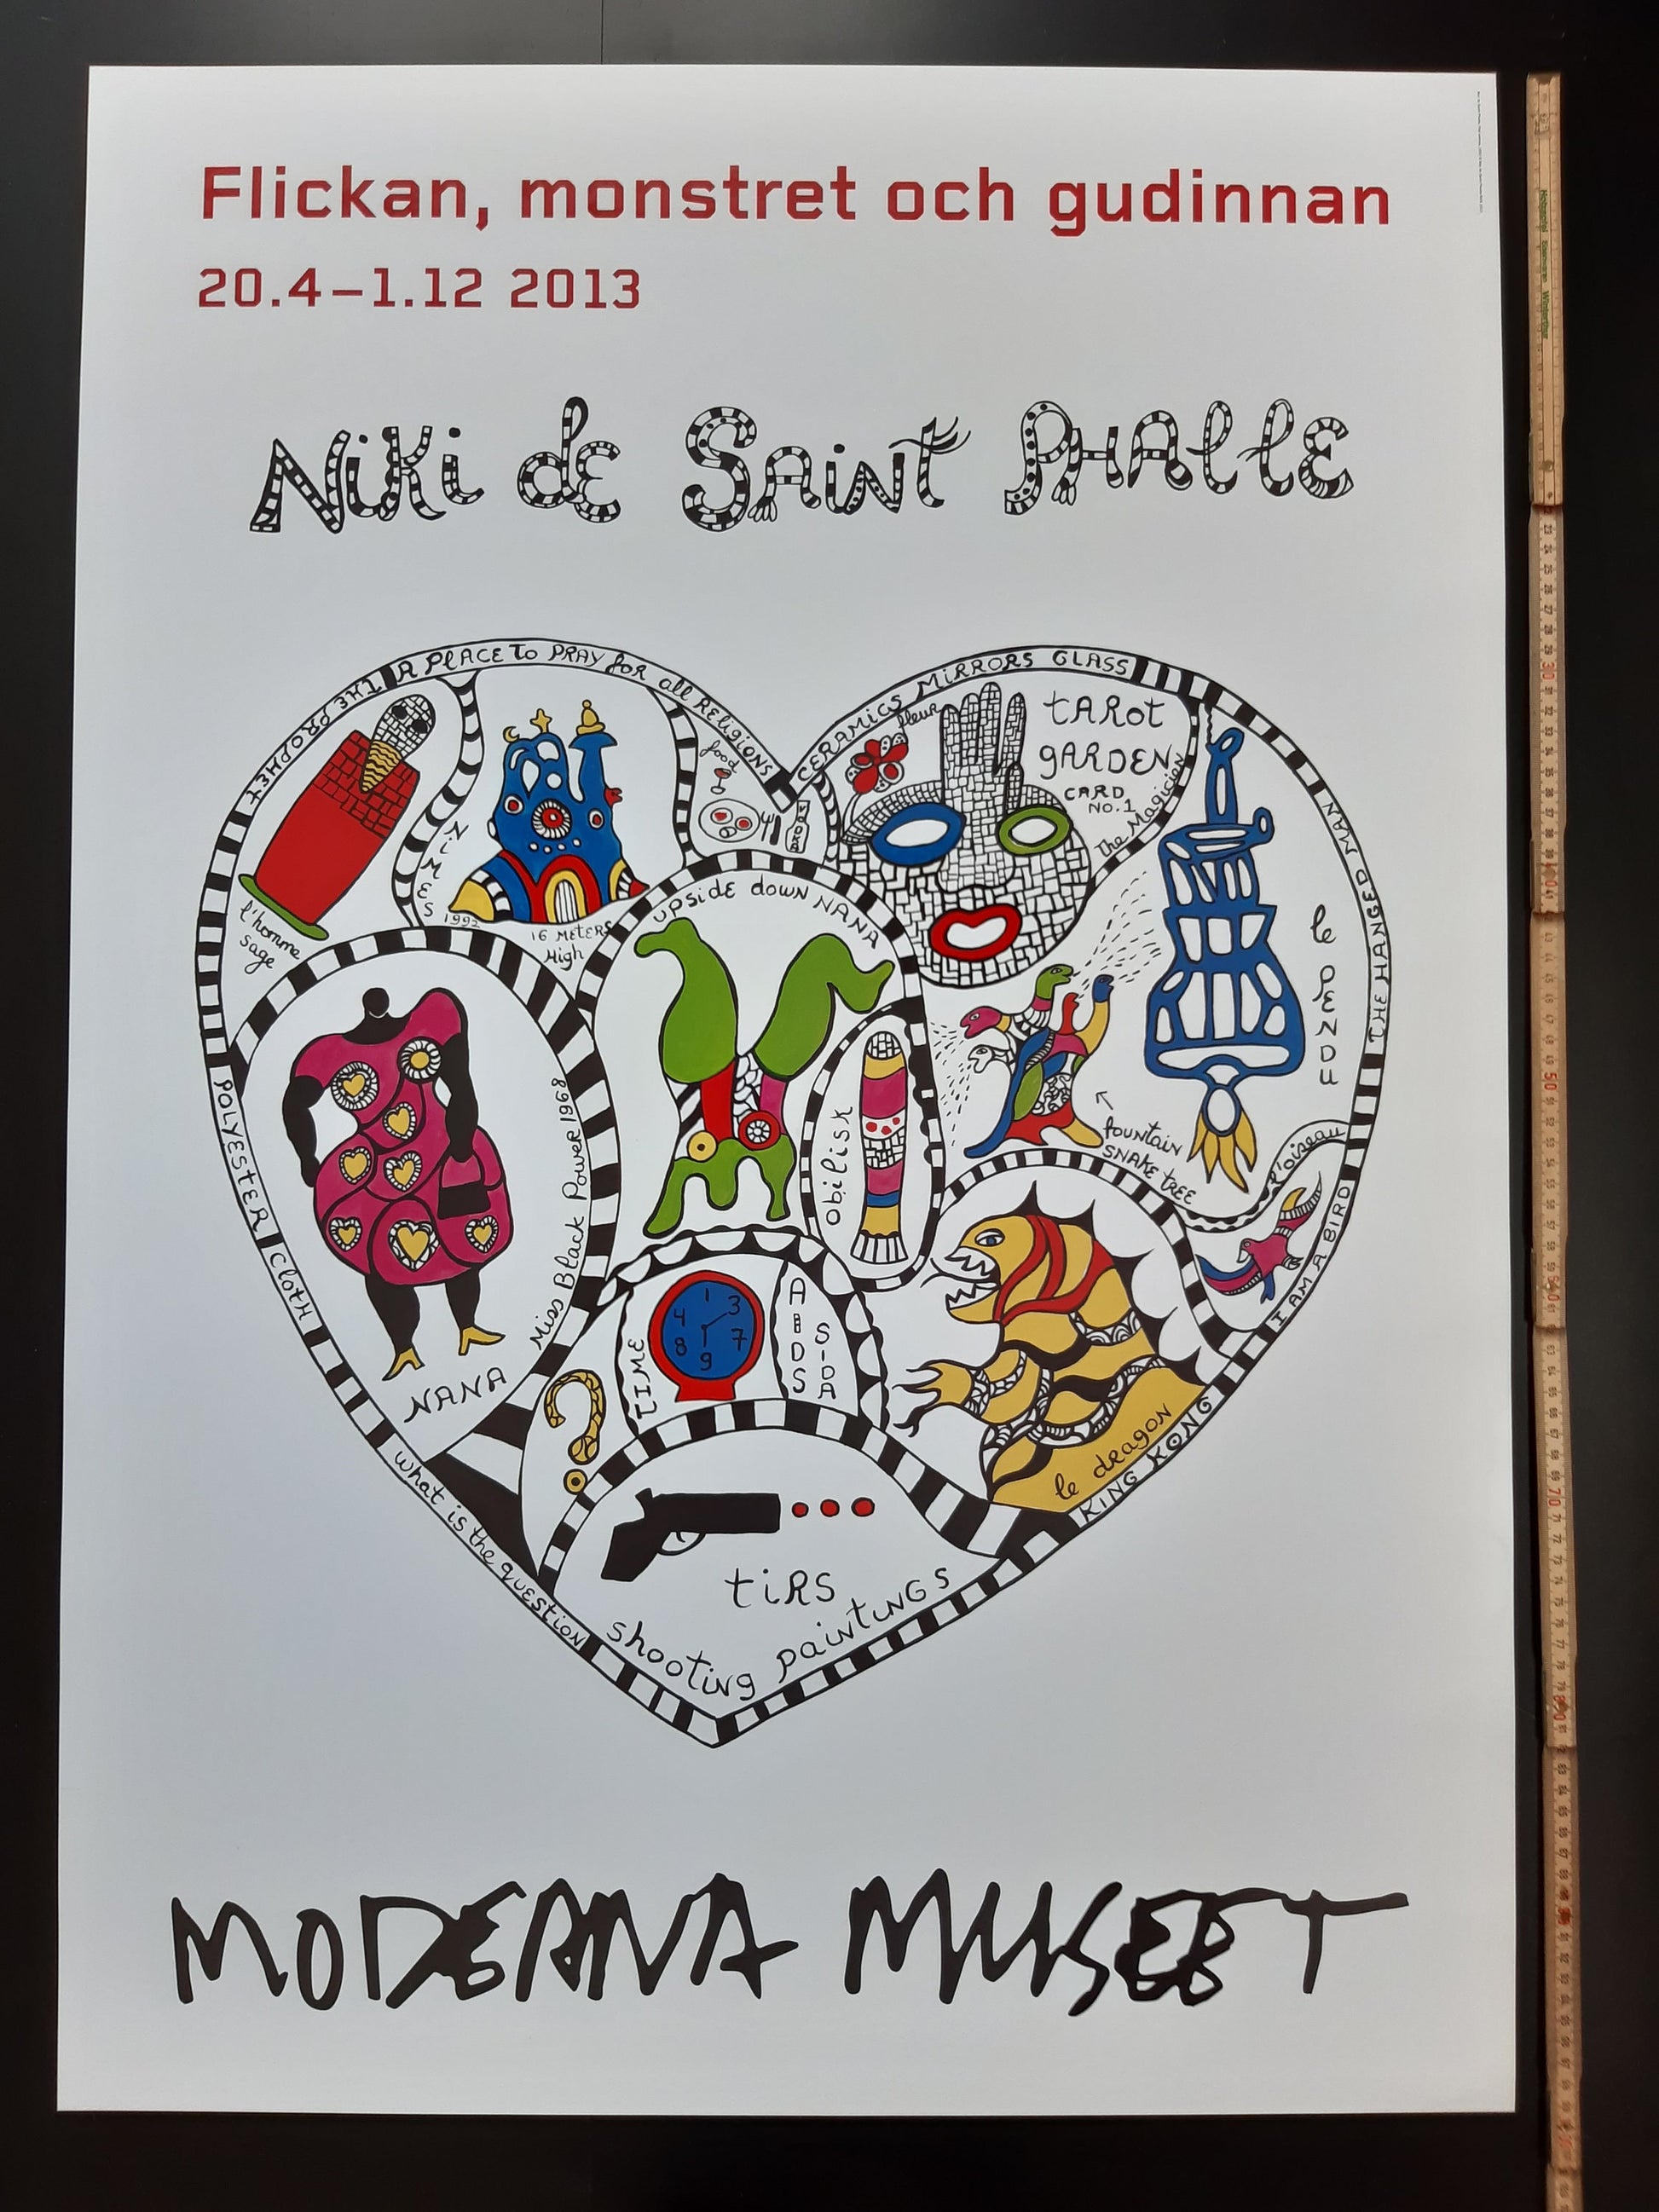 Flickan, monstret och gudinnan
20.4–1.12 2013
Niki de Saint Phalle
THE PROPHET
A PLACE TO PRAY for all RELIGIONS
CERAMICS MIRRORS GLASS
fleur
TAROT
GARDEN
CARD
NO.1
The Magician
food
l'homme
sage
NIMES 1992
16 METERS
High
UPSIDE DOWN NANA
THE HANGED MAN
le PENDU
Obilisk
fountain
SNAKE TREE
l'oiseau
I AM A BIRD
POLYESTER
CLOTH
Miss Black Power 1968
NANA
TIME
1
3
4
7
8
9
AIDS
SIDA
le dragon
KING KONG
what is the question
tirs
shooting paintings
MODERNA MUSEET
Holzapfel Siemann Winterthur